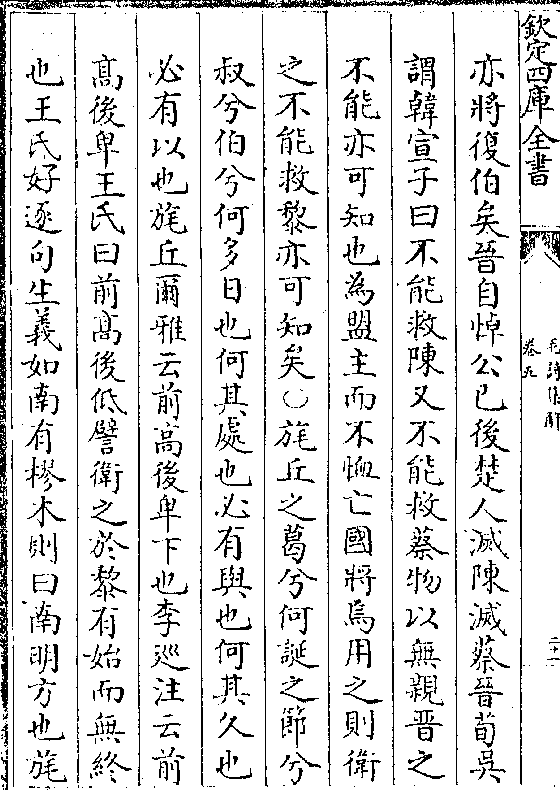 欽定四庫全書
卷五
亦將復伯矣晉自悼公已後楚人滅陳滅蔡晉荀吳
謂韓宣子曰不能救陳又不能救蔡物以無親晉之
不能亦可知也為盟主而不恤亡國將焉用之則衛
之不能救黎亦可知矣○旄丘之葛兮何誕之節兮
叔兮伯兮何多日也何其處也必有與也何其久也
必有以也旄丘爾雅云前高後卑下也李廵注云前
髙後卑王氏曰前髙後低譬衛之於黎有始而無終
也王氏好逐句生義如南有樛木則曰南明方也旄